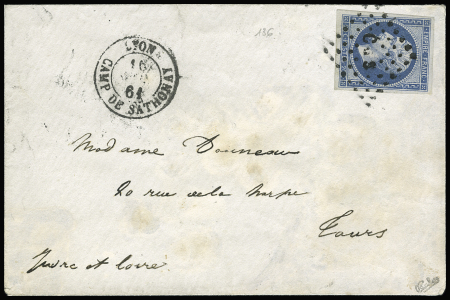 136
LYON
CAMP DE SATHONAY
16
61
EMPIRE FRANC
Madame Donneau
20 rue de la harpe
Tours
Indre et loire